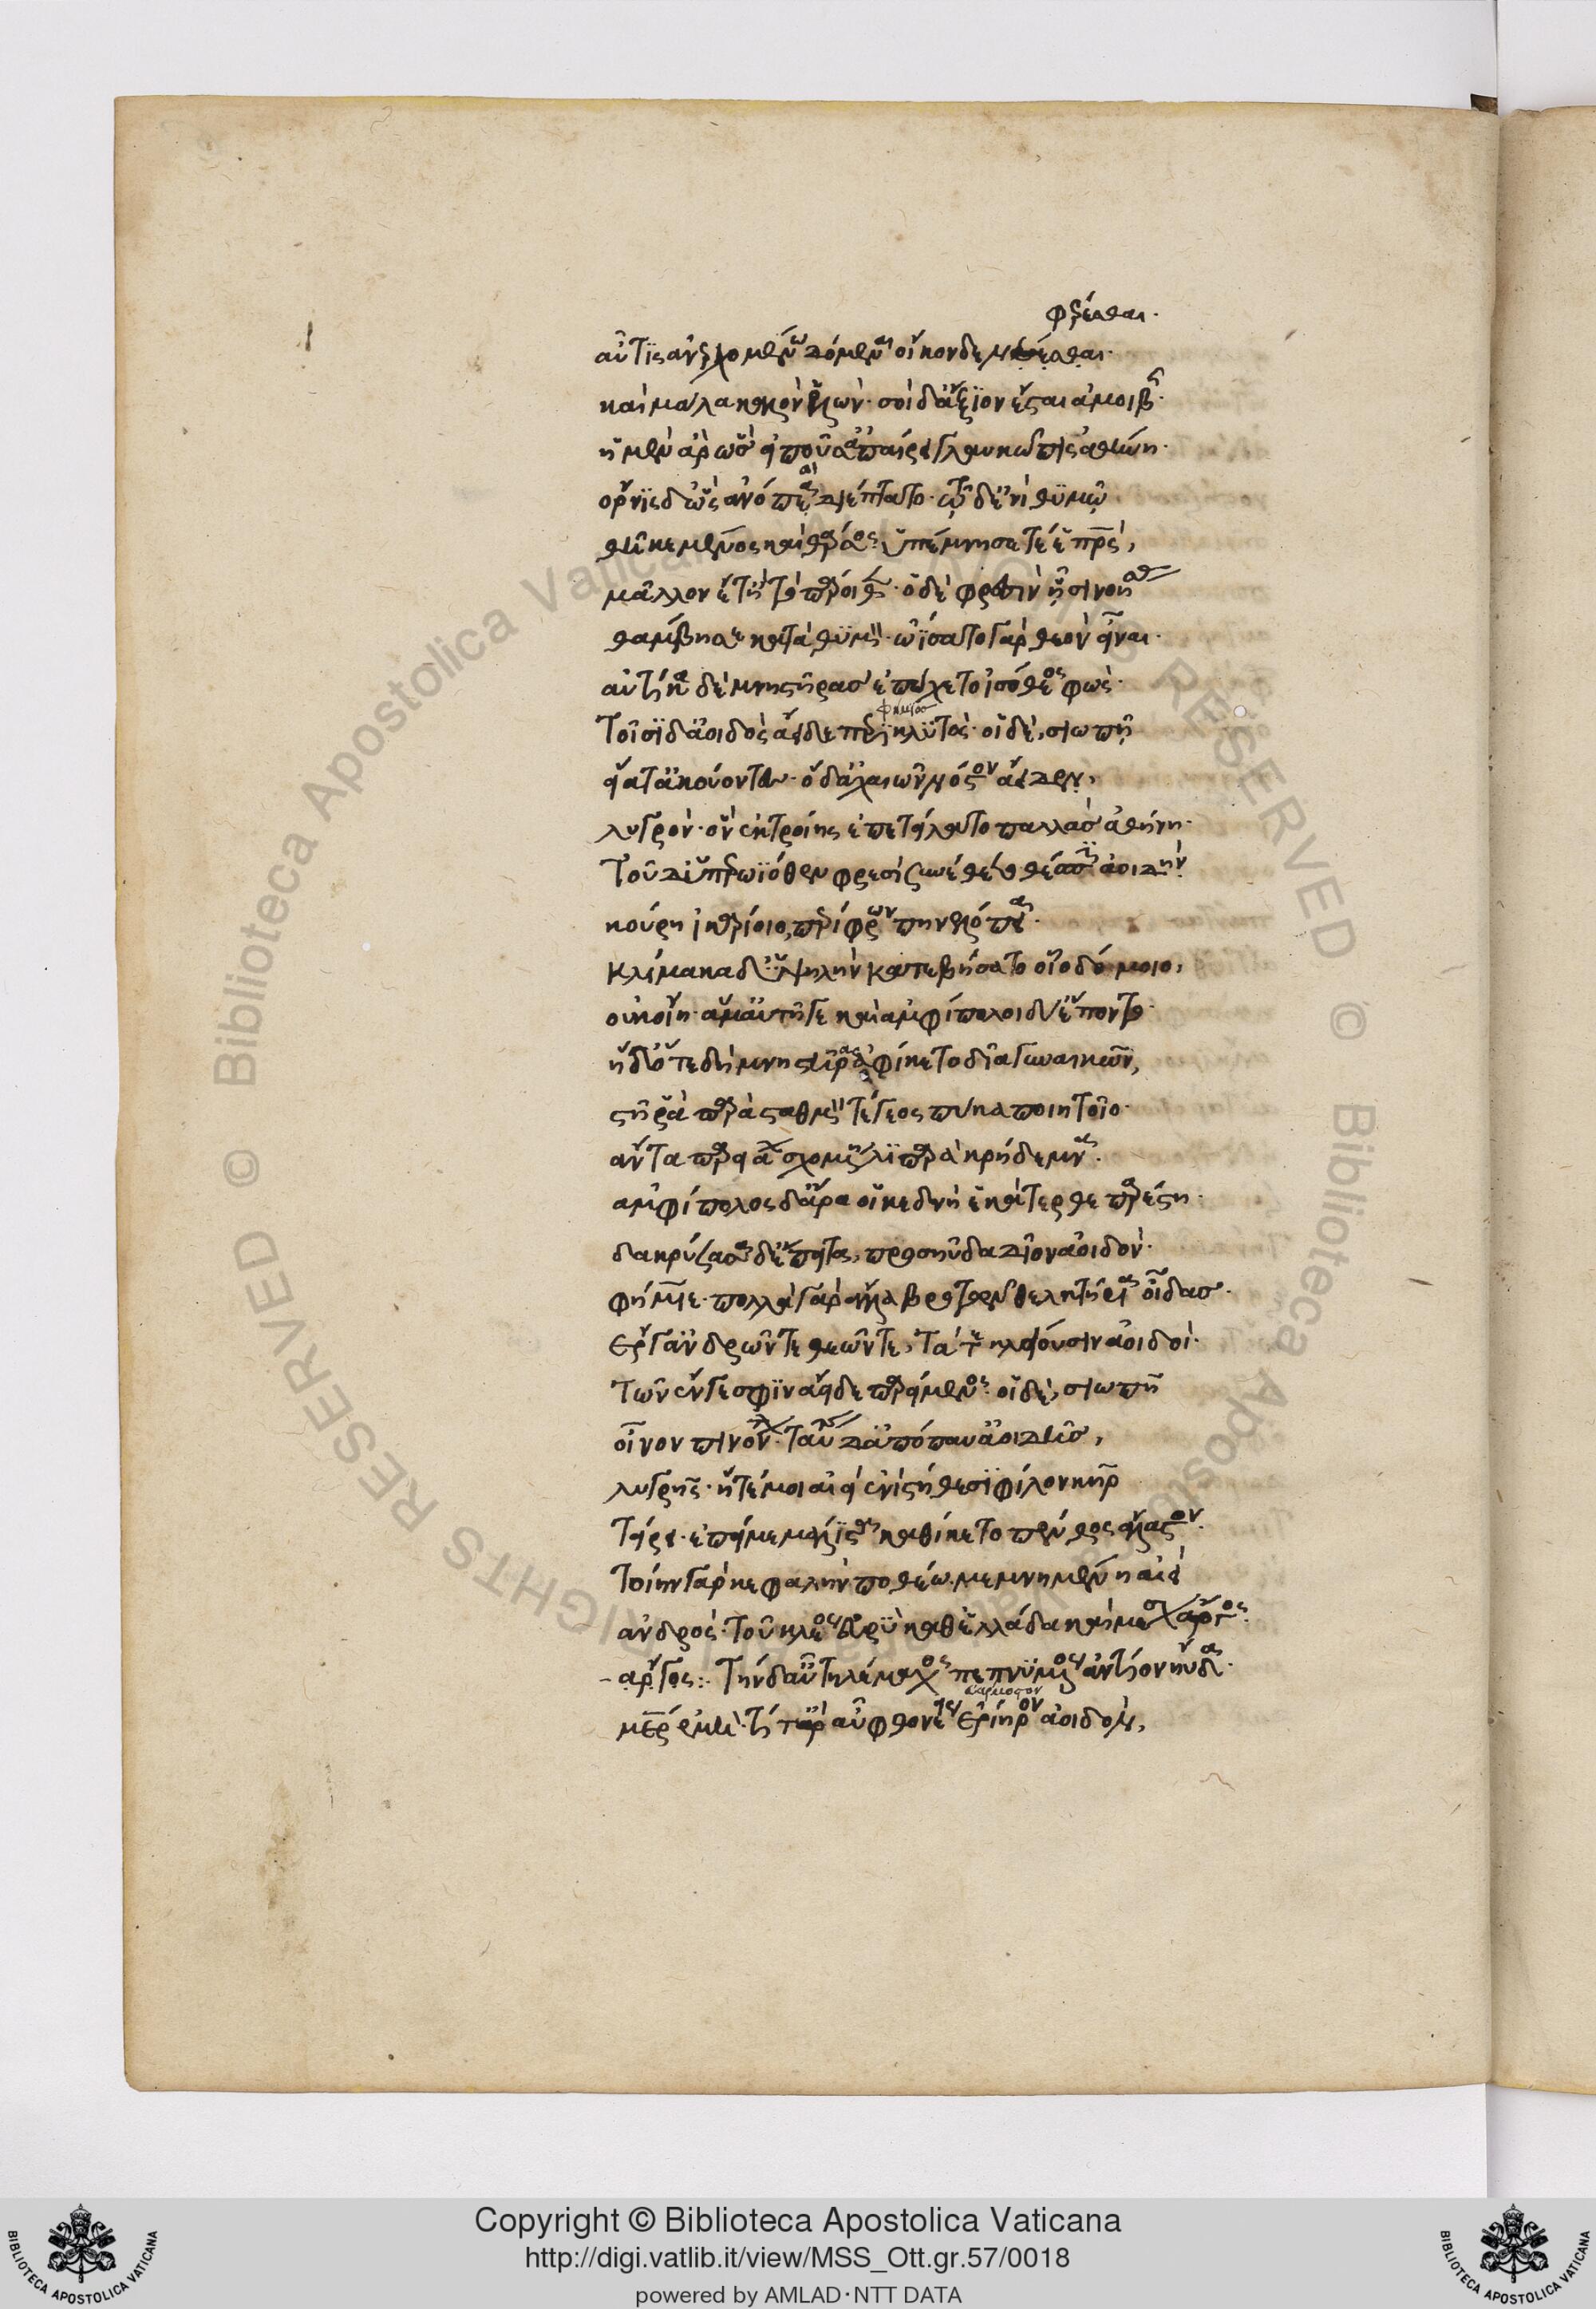 φέρεσθαι·
αὖτις ἀνερχομένω δόμεναι οἶκονδε νέεσθαι·
καὶ μάλα καλὸν ἑλών· σοὶ δ' ἄξιον ἔσται ἀμοιβῆς·
ἡ μὲν ἄρ ὣς εἰποῦσ' ἀπέβη γλαυκῶπις ἀθήνη·
ὄρνις δ' ὣς ἀνόπαια διέπτατο· τῷ δ' ἐνὶ θυμῷ
θῆκε μένος καὶ θάρσος· ὑπέμνησέ τέ ἑ πατρὸς,
μᾶλλον ἔτ' ἢ τὸ πάροιθεν· ὁ δὲ φρεσὶν ᾗσι νοήσας
θάμβησε κατὰ θυμόν· ὠίσατο γὰρ θεὸν εἶναι·
αὐτίκα δὲ μνηστῆρας ἐπῴχετο ἰσόθεος φώς·
φήμιος
τοῖσι δ' ἀοιδὸς ἄειδε περικλυτός· οἱ δὲ, σιωπῇ
εἵατ' ἀκούοντες· ὁ δ' ἀχαιῶν νόστον ἄειδεν,
λυγρόν· ὃν ἐκ τροίης ἐπετείλατο παλλὰς ἀθήνη·
τοῦ δ' ὑπερωϊόθεν φρεσὶ σύνθετο θέσπιν ἀοιδήν·
κούρη ἰκαρίοιο, περίφρων πηνελόπεια·
κλίμακα δ' ὑψηλὴν κατεβήσατο οἷο δόμοιο,
οὐκ οἴη· ἅμα τῇγε καὶ ἀμφίπολοι δύ' ἕποντο·
ἡ δ' ὅτε δὴ μνηστῆρας ἀφίκετο δῖα γυναικῶν,
στῆ ῥὰ παρὰ σταθμὸν τέγεος πύκα ποιητοῖο·
ἄντα παρειάων σχομένη λιπαρὰ κρήδεμνα·
ἀμφίπολος δ' ἄρα οἱ κεδνὴ ἑκάτερθε παρέστη·
δακρύσασα δ' ἔπειτα, προσηύδα δῖον ἀοιδόν·
φήμιε· πολλὰ γὰρ ἄλλα βροτῶν θελκτήρια οἶδας·
ἔργ' ἀνδρῶν τε θεῶν τε, τά τε κλείουσιν ἀοιδοί·
τῶν ἕν γέ σφιν ἄειδε παρήμενος· οἱ δὲ, σιωπῇ
οἶνον πινόντων· ταύτης δ' ἀποπαύε' ἀοιδῆς,
λυγρῆς· ἥ τέ μοι αἰεὶ ἐνὶ στήθεσι φίλον κῆρ
τείρει· ἐπεί με μάλιστα καθίκετο πένθος ἄλαστον·
τοίην γὰρ κεφαλὴν ποθέω μεμνημένη αἰεὶ
ἀνδρός· τοῦ κλέος εὐρὺ καθ' ἑλλάδα καὶ μέσον ἄργος·
ἄργος: τὴν δ' αὖ τηλέμαχος πεπνυμένος ἀντίον ηὔδα·
εὐάρμοστον
μῆτερ ἐμή· τί τ' ἄρ αὖ φθονέεις ἐρίηρον ἀοιδὸν,
Copyright © Biblioteca Apostolica Vaticana
http://digi.vatlib.it/view/MSS_Ott.gr.57/0018
powered by AMLAD·NTT DATA